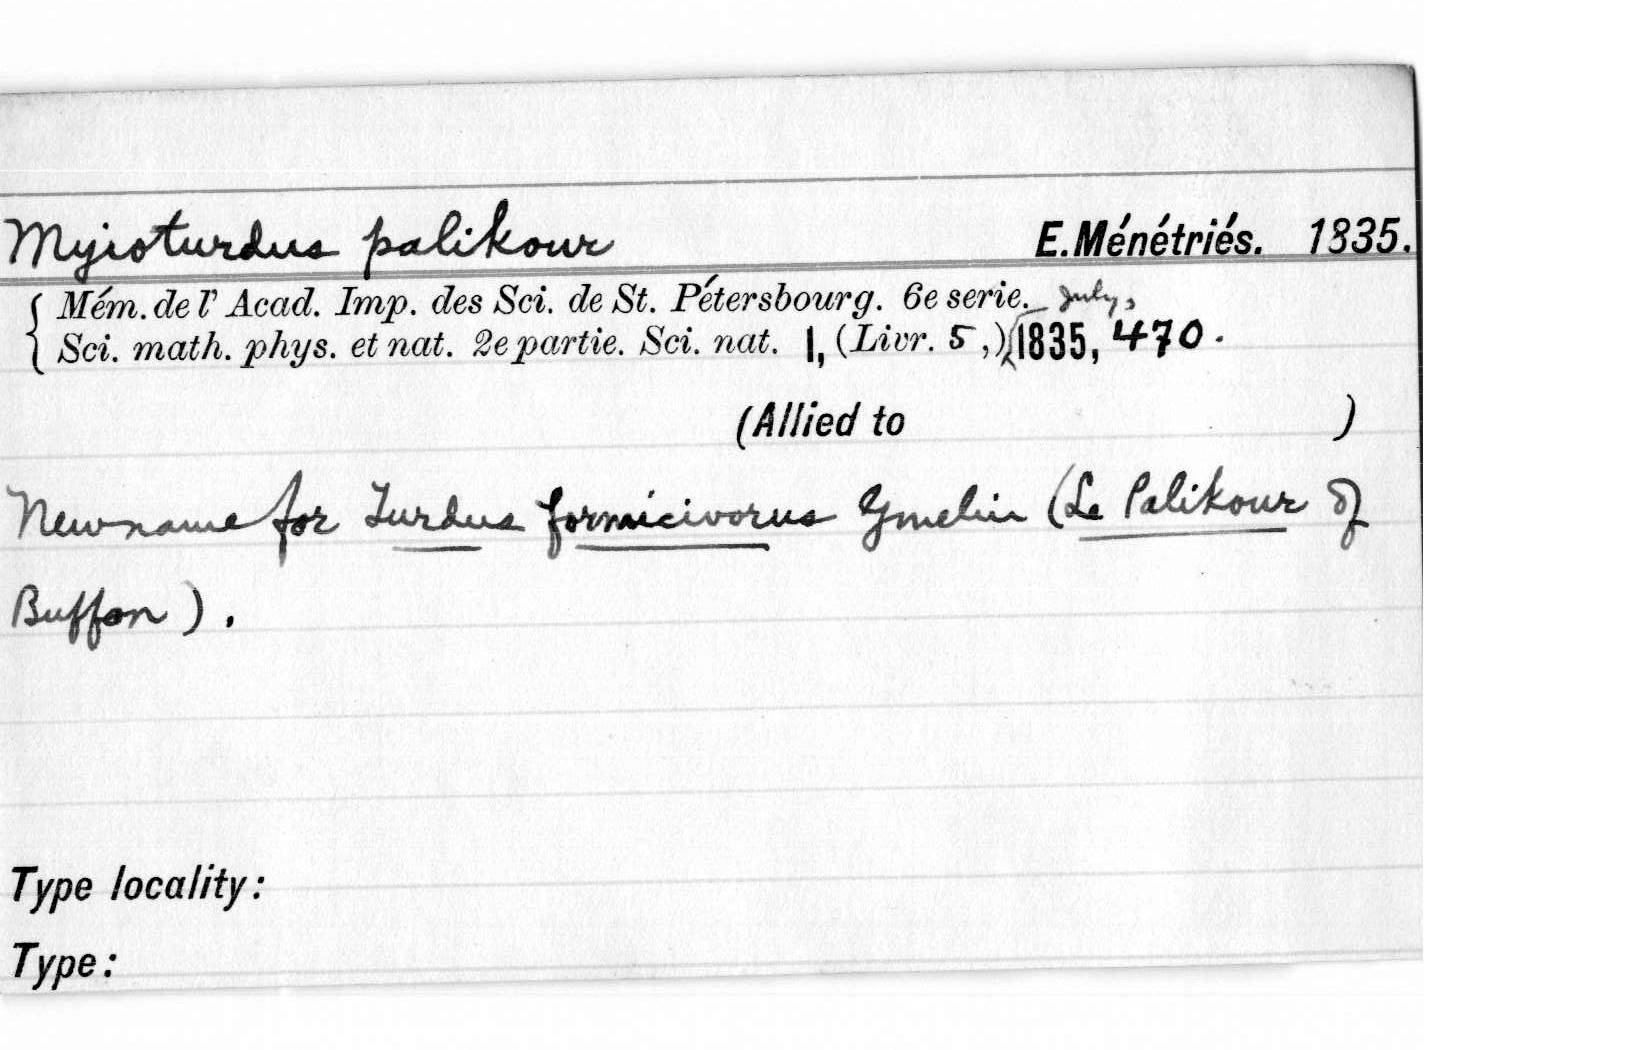 Myioturdus palikour E.Ménétriés. 1835.
Mém. de l' Acad. Imp. des Sci. de St. Pétersbourg. 6e serie. July,
Sci. math. phys. et nat. 2e partie. Sci. nat. 1, (Livr. 5,) 1835, 470.
(Allied to )
New name for Turdus formicivorus Gmelin (Le Palikour of
Buffon).
Type locality:
Type: